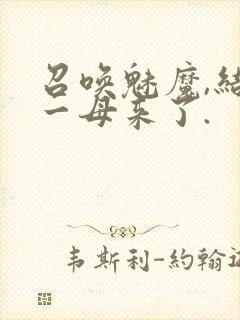 召喚魅魔,結
一母来了.
韦斯利-約翰逊